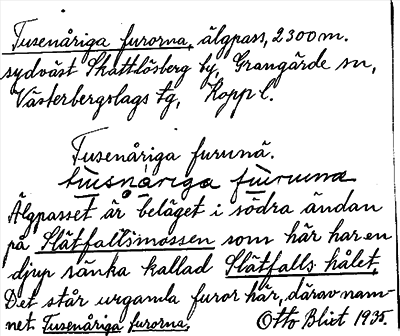 Tusenåriga furorna, älgpass, 2300m.
sydväst Skattlösberg by, Grangärde sn,
Västerbergslags tg, Kopp l.
Tusenåriga furunä.
tu̇snåriga fu̇ru̇na
Älgpasset är beläget i södra ändan
på Slätfallsmossen som här har en
djup sänka kallad Slätfalls hålet.
Det står urgamla furor här, därav nam-
net Tusenåriga furorna.
Otto Blixt 1935.